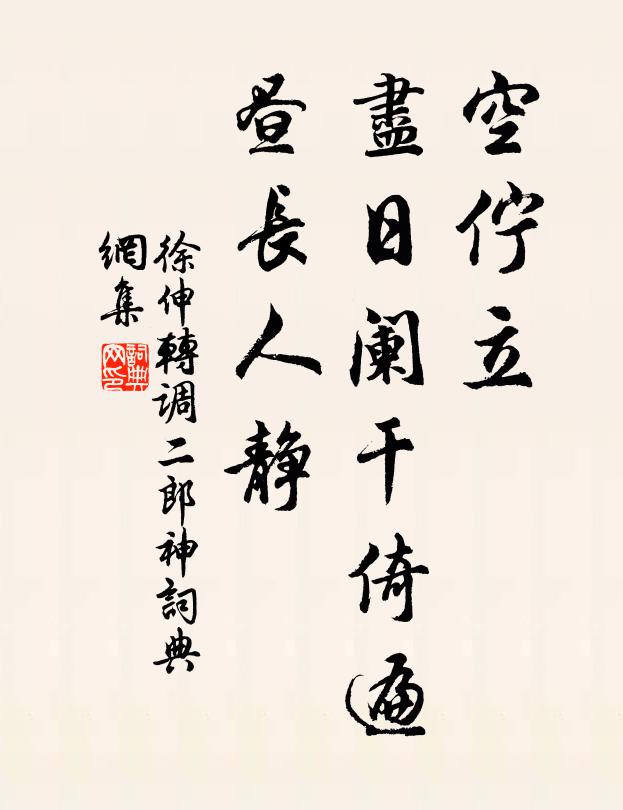 空佇立
盡日阑干倚遍
昼長人靜
徐伸轉调二郎神詞典
網集
詞典
网印